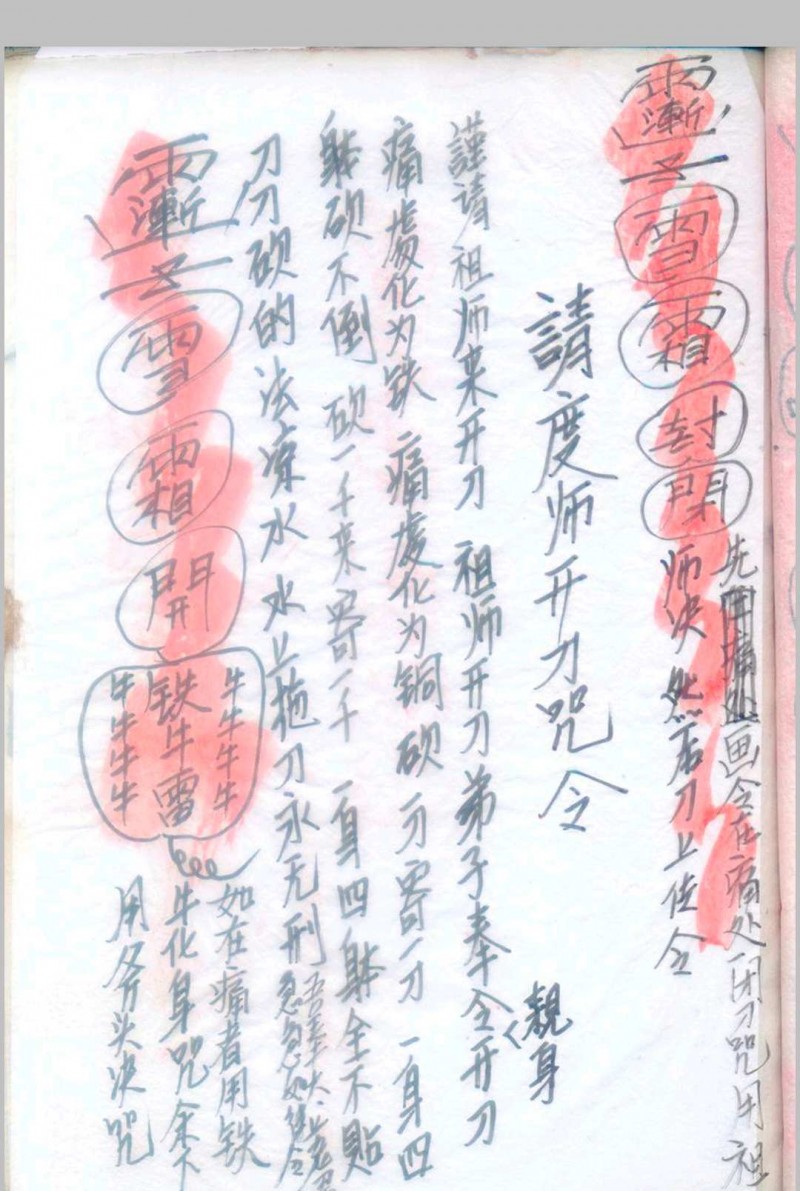 先用痛处画令在痛处闭刀咒用祖
師决然后刀上佐令
封
請度师开刀咒令
謹請祖师来开刀 祖师开刀弟子奉令开刀
親身
痛處化为铁 痛處化为铜 砍一刀寄一刀 一身四
躰砍不倒 砍一千来寄一千 一身四躰全不贴
刀刀砍的法凉水 水上拖刀永无刑
吾奉太上老君
急急如律令
雪
霜
開
牛牛牛牛
铁牛雷
牛牛牛牛
如在痛者用铁
牛化身咒余下
用斧头决咒